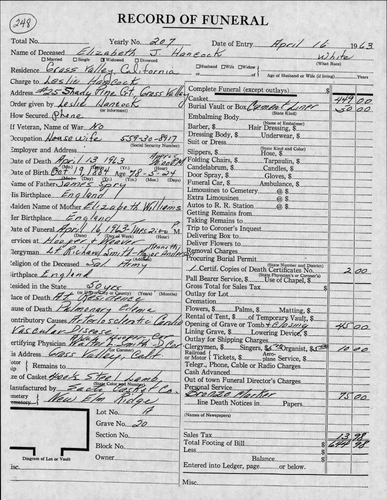 248
RECORD OF FUNERAL
Total No. Yearly No. 207 Date of Entry April 16 1963
Name of Deceased Elizabeth J. Hancock White
Married Single Widowed Divorced Husband Wife Widow (What Race)
Residence Grass Valley, California
Age of Husband or Wife (if living) Years
Charge to Leslie Hancock
Address #25 Shady Pine Ct, Grass Valley
Order given by Leslie Hancock
or Informant
How Secured Phone
If Veteran, Name of War No
Occupation Housewife 559-30-8917
(Social Security Number)
Employer and Address
Date of Death April 13 1963
Date of Birth Oct 19, 1884 Age 78-5-24
Name of Father James Spry
His Birthplace England
Maiden Name of Mother Elizabeth Williams
Her Birthplace England
Date of Funeral April 16, 1963 M.
Services at Hooper & Weaver
Clergyman Lt Richard Smith
Religion of the Deceased Army
Birthplace England
Resided in the State 50 yer
Place of Death At Residence
Cause of Death Pulmonary Edema
Contributory Causes Arteriosclerotic Cardio
Vascular Disease
Certifying Physician
His Address Grass Valley, Calif
Remains to
Size of Casket
Manufactured by
Cemetery New Elm Ridge
Lot No. A
Grave No. 20
Section No.
Block No.
Owner
Diagram of Lot or Vault
Complete Funeral (except outlays) $
Casket 449.00
Burial Vault or Box Cement Liner 50.00
(State Kind)
Embalming Body
(Name of Embalmer)
Barber, $ Hair Dressing, $
Dressing Body, $ Underwear, $
Suit or Dress
(State Kind and Color)
Slippers, $ Hose, $
Folding Chairs, $ Tarpaulin, $
Candelabrum, $ Candles, $
Door Spray, $ Gloves, $
Funeral Car, $ Ambulance, $
Limousines to Cemetery @ $
Extra Limousines @ $
Autos to R. R. Station @ $
Getting Remains
Taking Remains
Trip to Coroner's Inquest
Delivering Box
Deliver Flowers
Removal Charges
Procuring Burial Permit
(State Number and District)
1 Certif. Copies of Death Certificates No. 2.00
Pall Bearer Service, $ Use of Chapel, $
Gross Total of Sales Tax $
Outlay for Lot
Cremation
Flowers, $ Palms, $ Matting, $
Rental of Tent, $ of Temporary Vault, $
Opening of Grave or Tomb & Closing 45.00
Lining Grave, $ Lowering Device, $
Outlay for Shipping Charges
Clergymen, $ Singers, $ Organist, $ 10.00
Railroad or Motor Tickets, $ Aeroplane Service, $
Telegr., Phone, Cable or Radio Charges
Cash Advanced
Out of town Funeral Director's Charges
Personal Service
Bronze Marker 75.00
line Death Notices in Papers
(Names of Newspapers)
Sales Tax 13.98
Total Footing of Bill $ 644.98
Less
Balance $
Entered into Ledger, page or below.